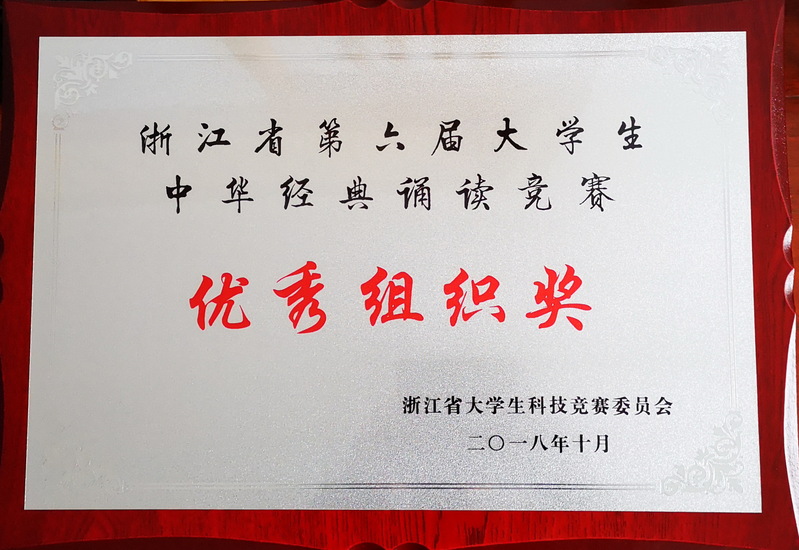 浙江省第六届大学生
中华经典诵读竞赛
优秀组织奖
浙江省大学生科技竞赛委员会
二〇一八年十月